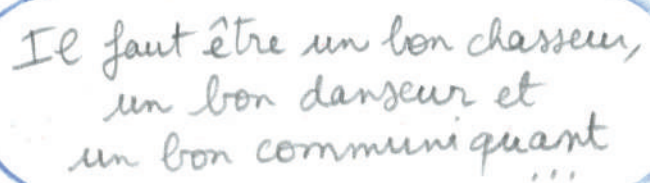 Il faut être un bon chasseur,
un bon danseur et
un bon communiquant
...